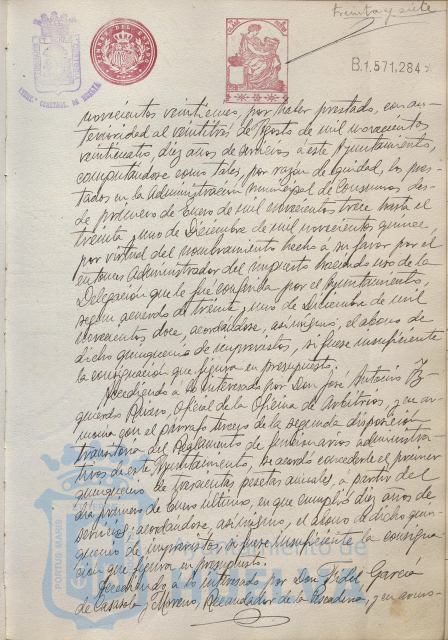 Treinta y siete
TIMBRE DEL ESTADO
B.1.571.284
novecientos veintiuno por haber prestado, con an-
terioridad al veintitrés de Agosto de mil novecientos
veinticuatro, diez años de servicios a este Ayuntamiento,
computándose como tales, por razón de equidad, los pres-
tados en la Administración municipal de Consumos des-
de primero de Enero de mil novecientos trece hasta el
treinta y uno de Diciembre de mil novecientos quince
por virtud del nombramiento hecho a su favor por el
entonces Administrador del impuesto haciendo uso de la
Delegación que le fue conferida por el Ayuntamiento,
según acuerdo de treinta y uno de Diciembre de mil
novecientos doce, acordándose, asimismo, el abono de
dicho quinquenio de imprevistos, si fuese insuficiente
la consignación que figura en presupuesto.
Accediendo a lo interesado por Don José Antonio Iz-
quierdo Rivero, Oficial de la Oficina de Arbitrios, y en ar-
monía con el párrafo tercero de la segunda disposición
transitoria del Reglamento de funcionarios administra-
tivos de este Ayuntamiento, se acordó concederle el primer
quinquenio de trescientas pesetas anuales, a partir del
día primero de Enero último, en que cumplió diez años de
servicios; acordándose, asimismo, el abono de dicho quin-
quenio de imprevistos, si fuese insuficiente la consigna-
ción que figura en presupuesto.
Accediendo a lo interesado por Don Fidel García
de Casasola y Moreno, Recaudador de la Pescadería, y en armo-
PORTUS MARIS
Ayuntamiento de
HUELVA